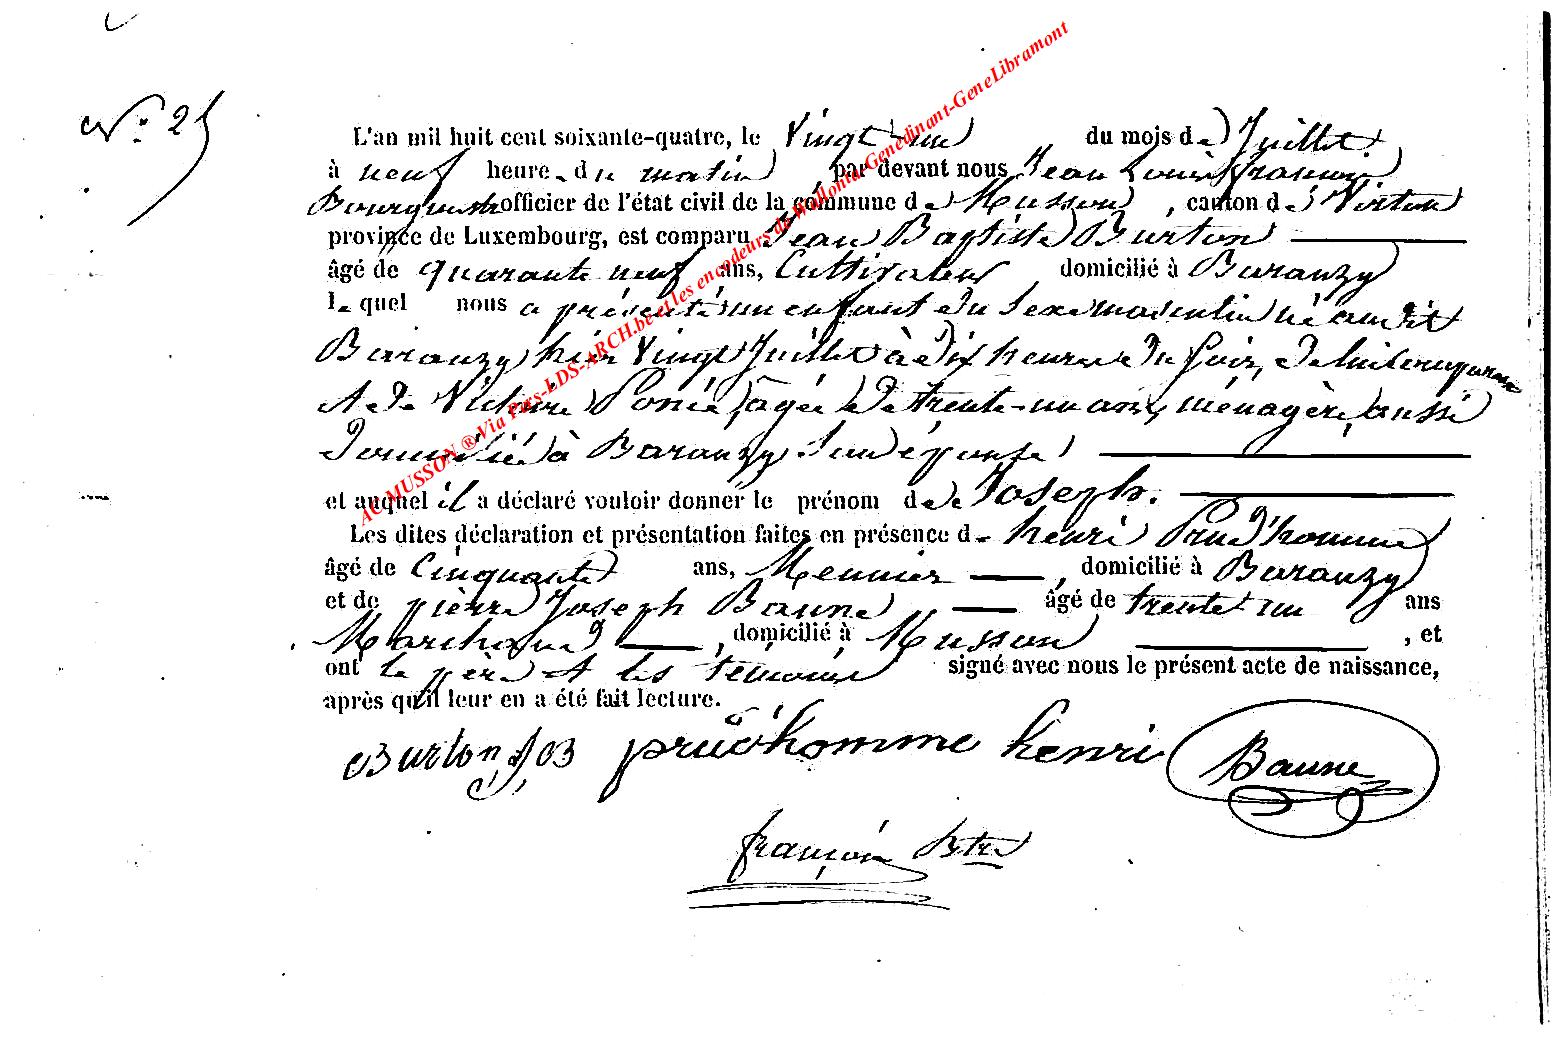 N° 25
L'an mil huit cent soixante-quatre, le Vingt un du mois de Juillet
à neuf heures du matin par devant nous Jean Louis françois
officier de l'état civil de la commune de Musson, canton de Virton
province de Luxembourg, est comparu Jean Baptiste Burton
âgé de quarante neuf ans, Cultivateur domicilié à Baranzy
lequel nous a présenté un enfant du sexe masculin né audit
Baranzy hier Vingt Juillet à dix heures du soir, de lui comparant
et de Victoire Poncé, âgée de trente-un ans, ménagère, aussi
domiciliée à Baranzy Son épouse
et auquel il a déclaré vouloir donner le prénom de Joseph.
Les dites déclaration et présentation faites en présence de henri Prud'homme
âgé de Cinquante ans, Meunier, domicilié à Baranzy
et de pièrre Joseph Baune âgé de trente un ans
Marchand, domicilié à Musson, et
ont le père et les témoins signé avec nous le présent acte de naissance,
après qu'il leur en a été fait lecture.
Burton J B prud'homme henri Baune
françois Btre
AC MUSSON ® Via Pars-LDS-ARCH.be et les encodeurs de Wallonia-Genedinant-GeneLibramont